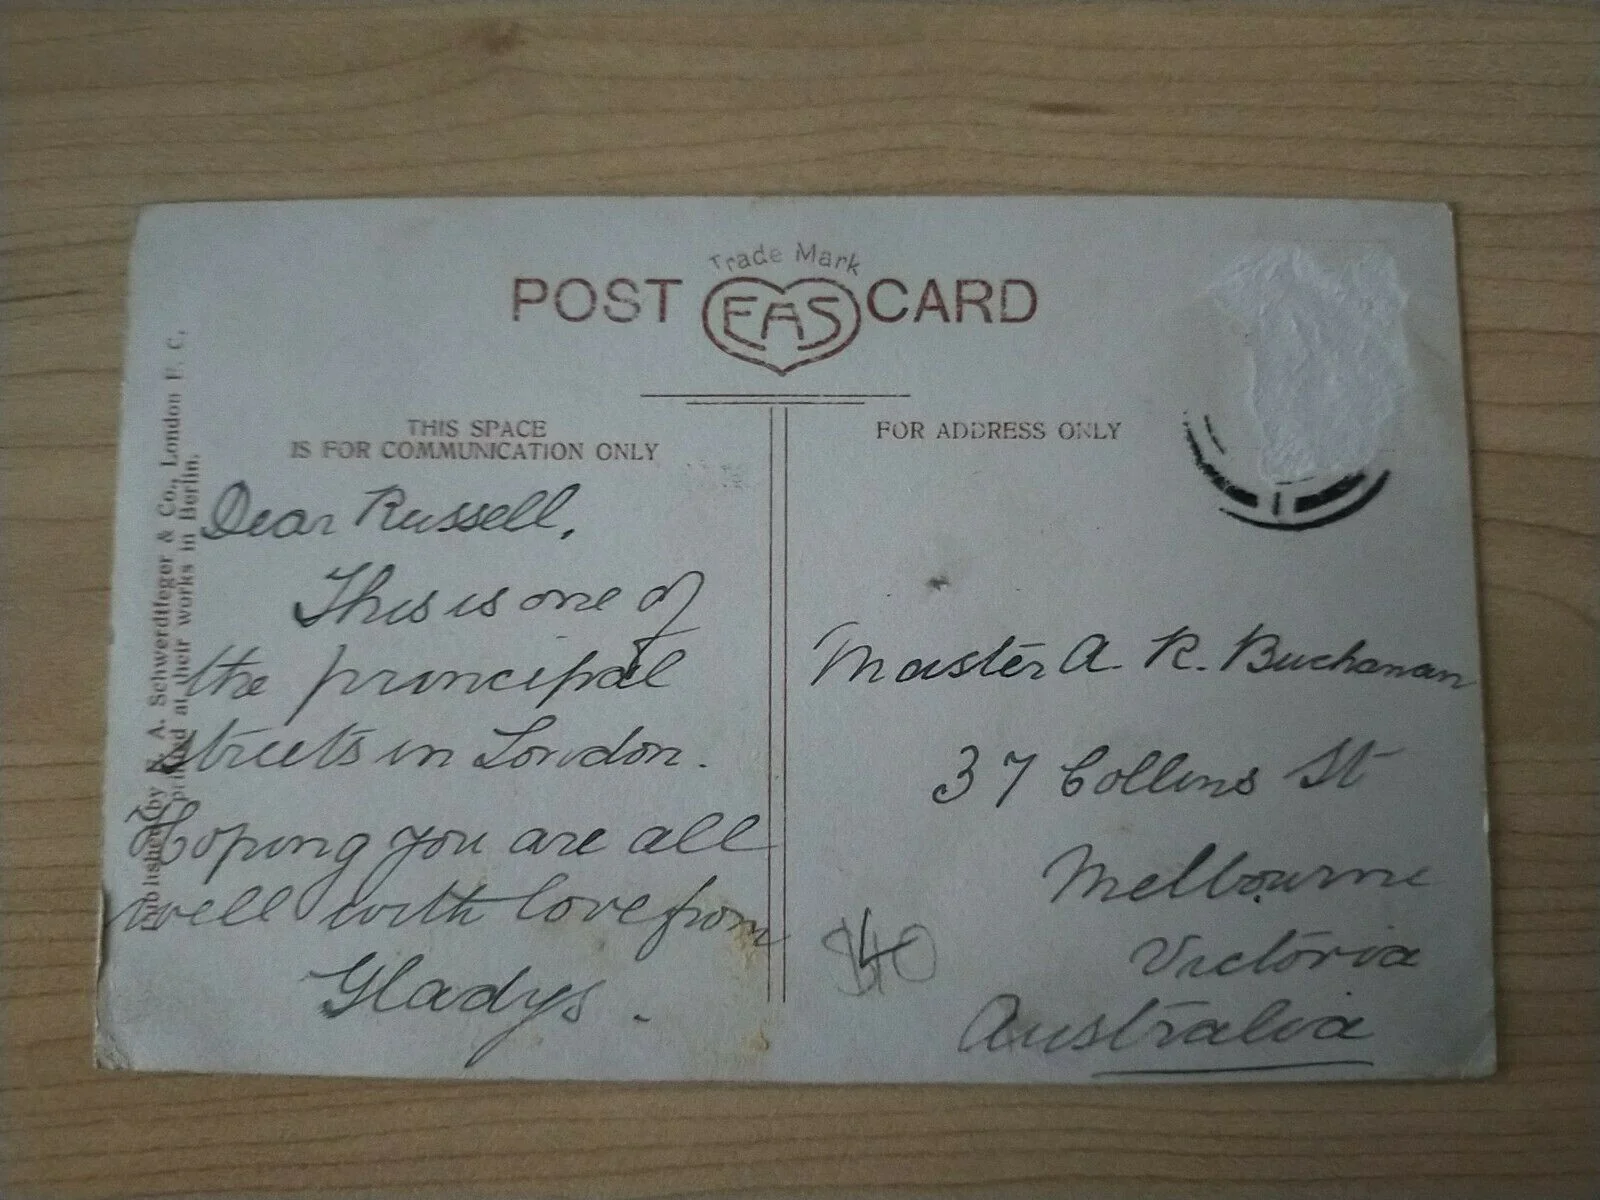 Trade Mark
POST EAS CARD
THIS SPACE
IS FOR COMMUNICATION ONLY
FOR ADDRESS ONLY
Published by E. A. Schwerdtfeger & Co., London E. C.
printed at their works in Berlin.
Dear Russell,
This is one of
the principal
streets in London.
Hoping you are all
well with love from
Gladys.
Master A. R. Buchanan
37 Collins St
Melbourne
Victoria
Australia